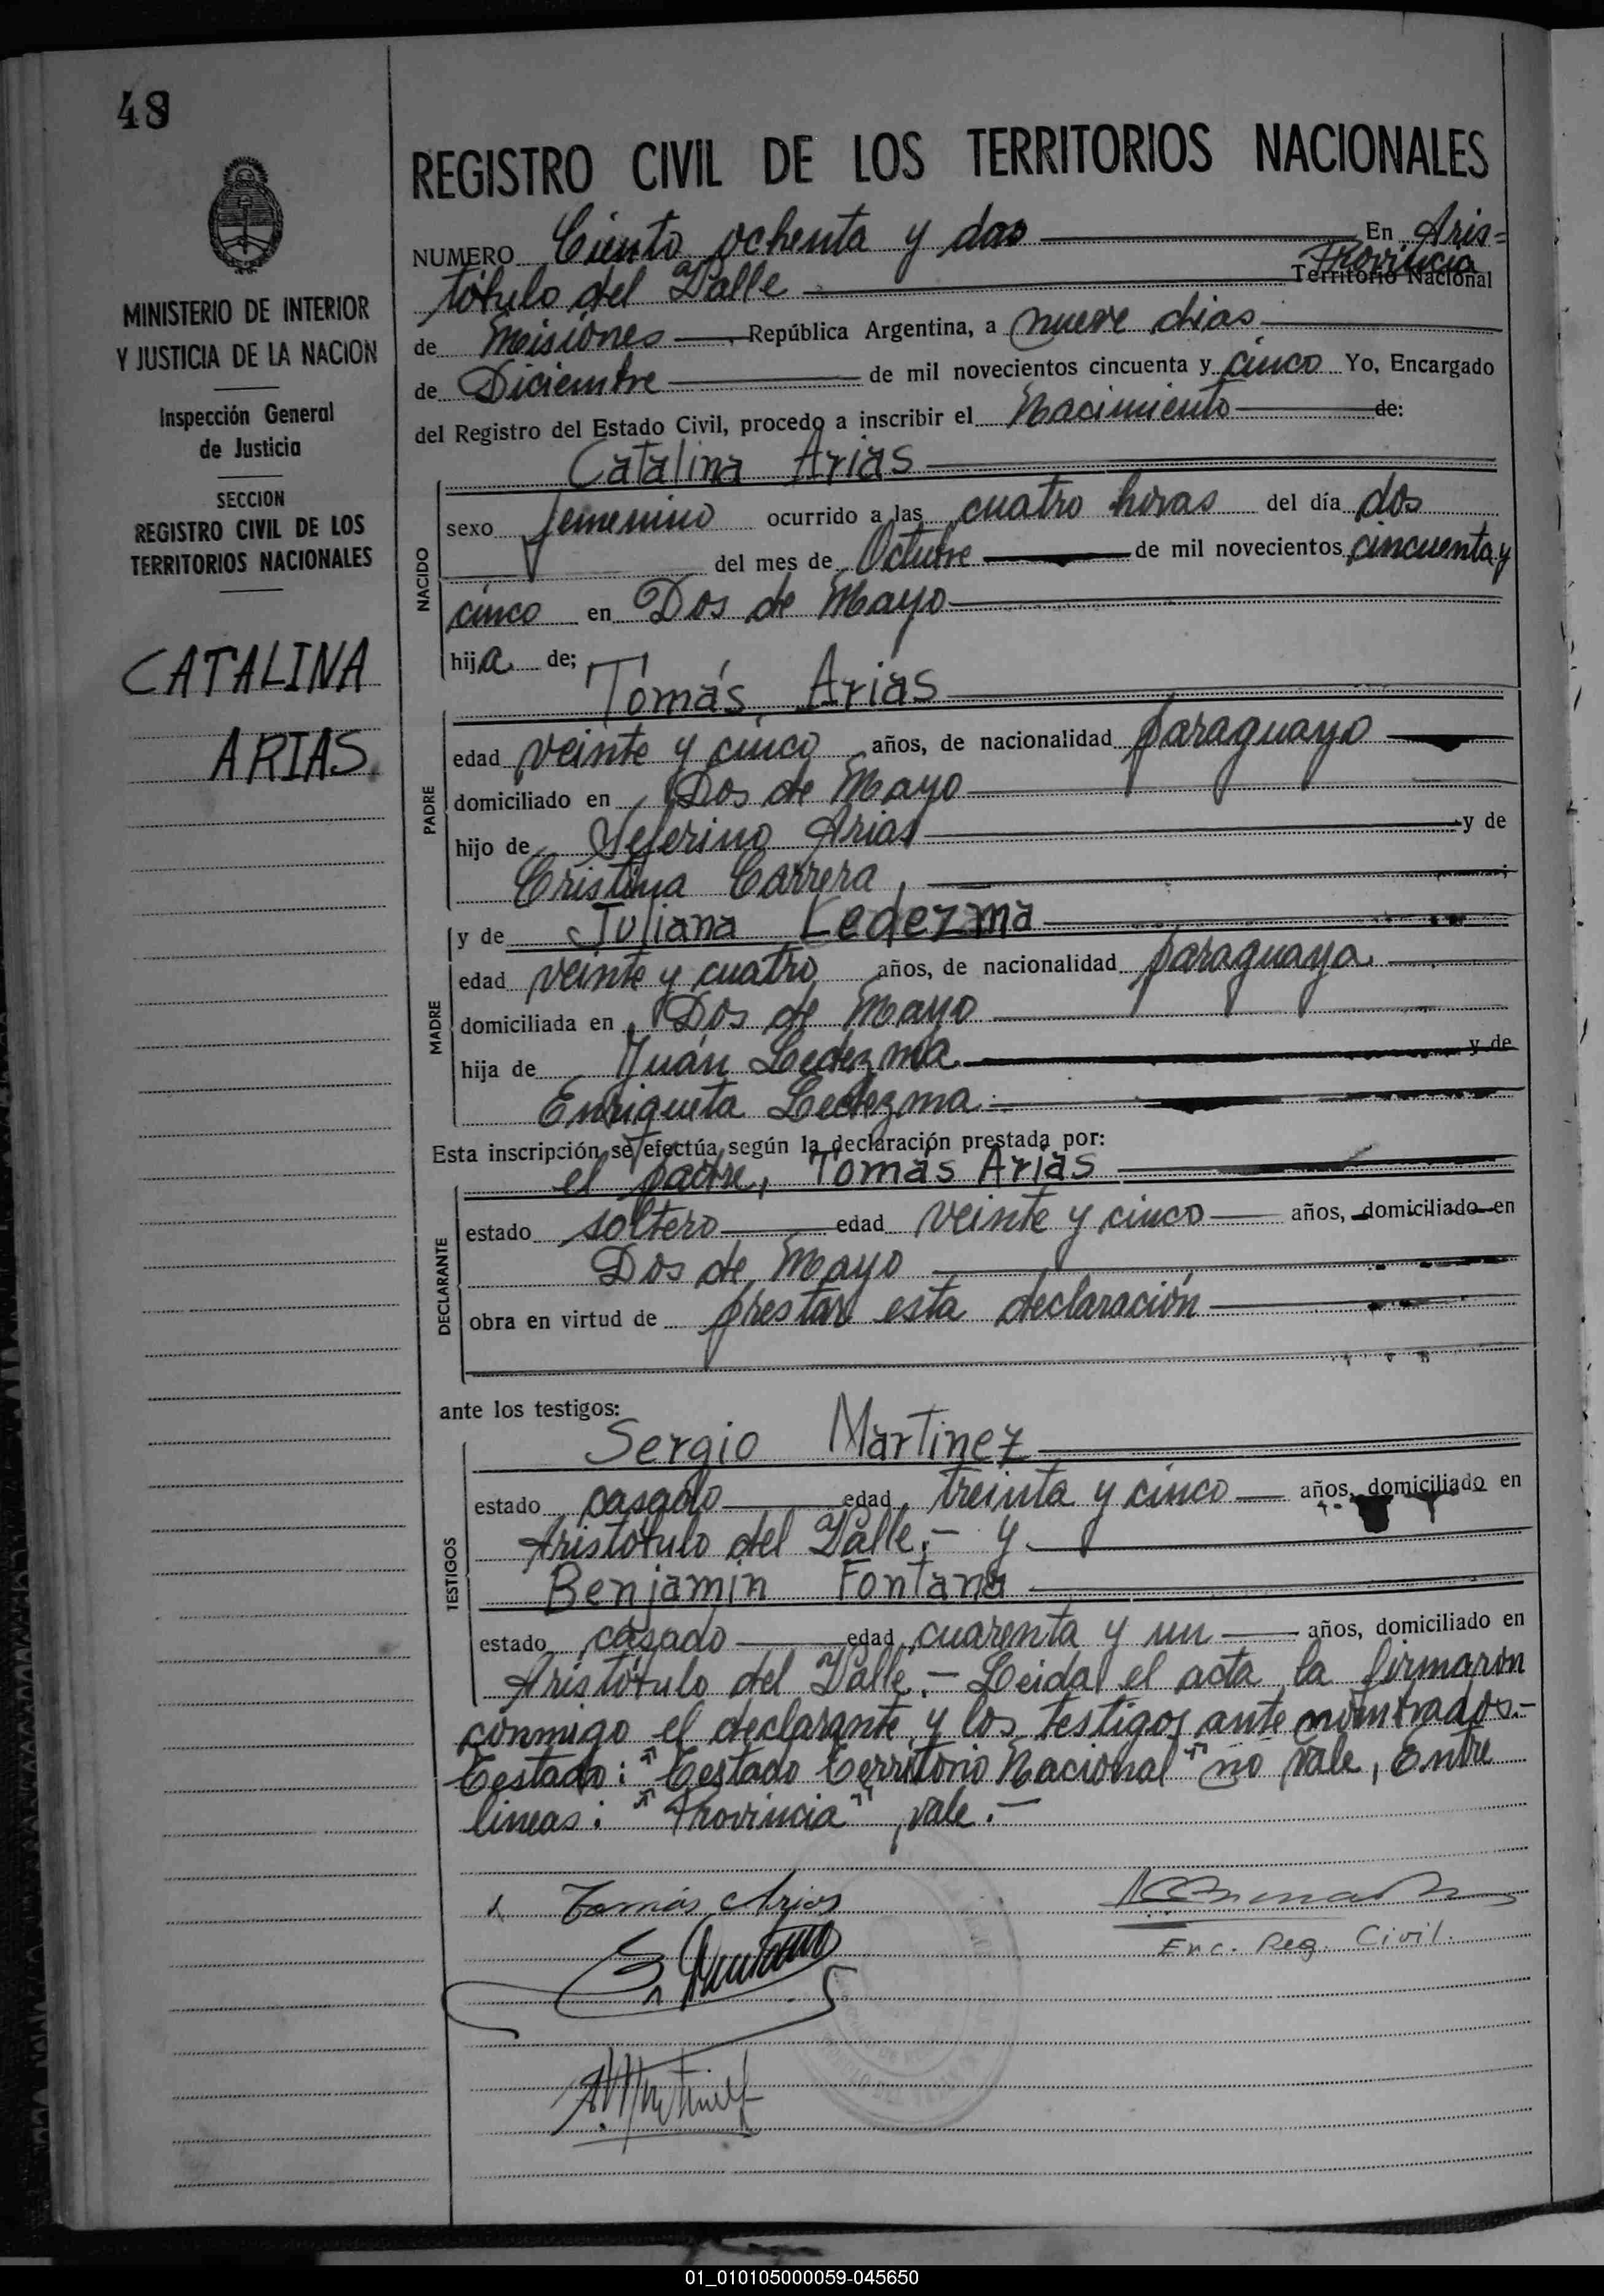 48
MINISTERIO DE INTERIOR
Y JUSTICIA DE LA NACION
Inspección General
de Justicia
SECCION
REGISTRO CIVIL DE LOS
TERRITORIOS NACIONALES
CATALINA
ARIAS.
REGISTRO CIVIL DE LOS TERRITORIOS NACIONALES
NUMERO Ciento ochenta y dos En Aris=
Provincia
tóbulo del Valle Territorio Nacional
de Misiones República Argentina, a nueve dias
de Diciembre de mil novecientos cincuenta y cinco Yo, Encargado
del Registro del Estado Civil, procedo a inscribir el Nacimiento de:
Catalina Arias
NACIDO
sexo femenino ocurrido a las cuatro horas del día dos
del mes de Octubre de mil novecientos cincuenta y
cinco en Dos de Mayo
hija de;
Tomás Arias
PADRE
edad veinte y cinco años, de nacionalidad paraguayo
domiciliado en Dos de Mayo
hijo de Seferino Arias y de
Cristina Carrera
y de Juliana Ledezma
MADRE
edad veinte y cuatro años, de nacionalidad paraguaya
domiciliada en Dos de Mayo
hija de Juán Ledezma y de
Enriqueta Ledezma
Esta inscripción se efectúa según la declaración prestada por:
el padre, Tomás Arias
DECLARANTE
estado soltero edad veinte y cinco años, domiciliado en
Dos de Mayo
obra en virtud de prestar esta declaración
ante los testigos:
TESTIGOS
Sergio Martinez
estado casado edad treinta y cinco años, domiciliado en
Aristóbulo del Valle.- y
Benjamin Fontana
estado casado edad cuarenta y un años, domiciliado en
Aristóbulo del Valle.- Leida el acta la firmaron
conmigo el declarante y los testigos ante nombrados.-
Testado: "Testado Territorio Nacional" no vale, Entre
lineas: "Provincia", vale.-
Tomás Arias
Enc. Reg. Civil.
01_010105000059-045650